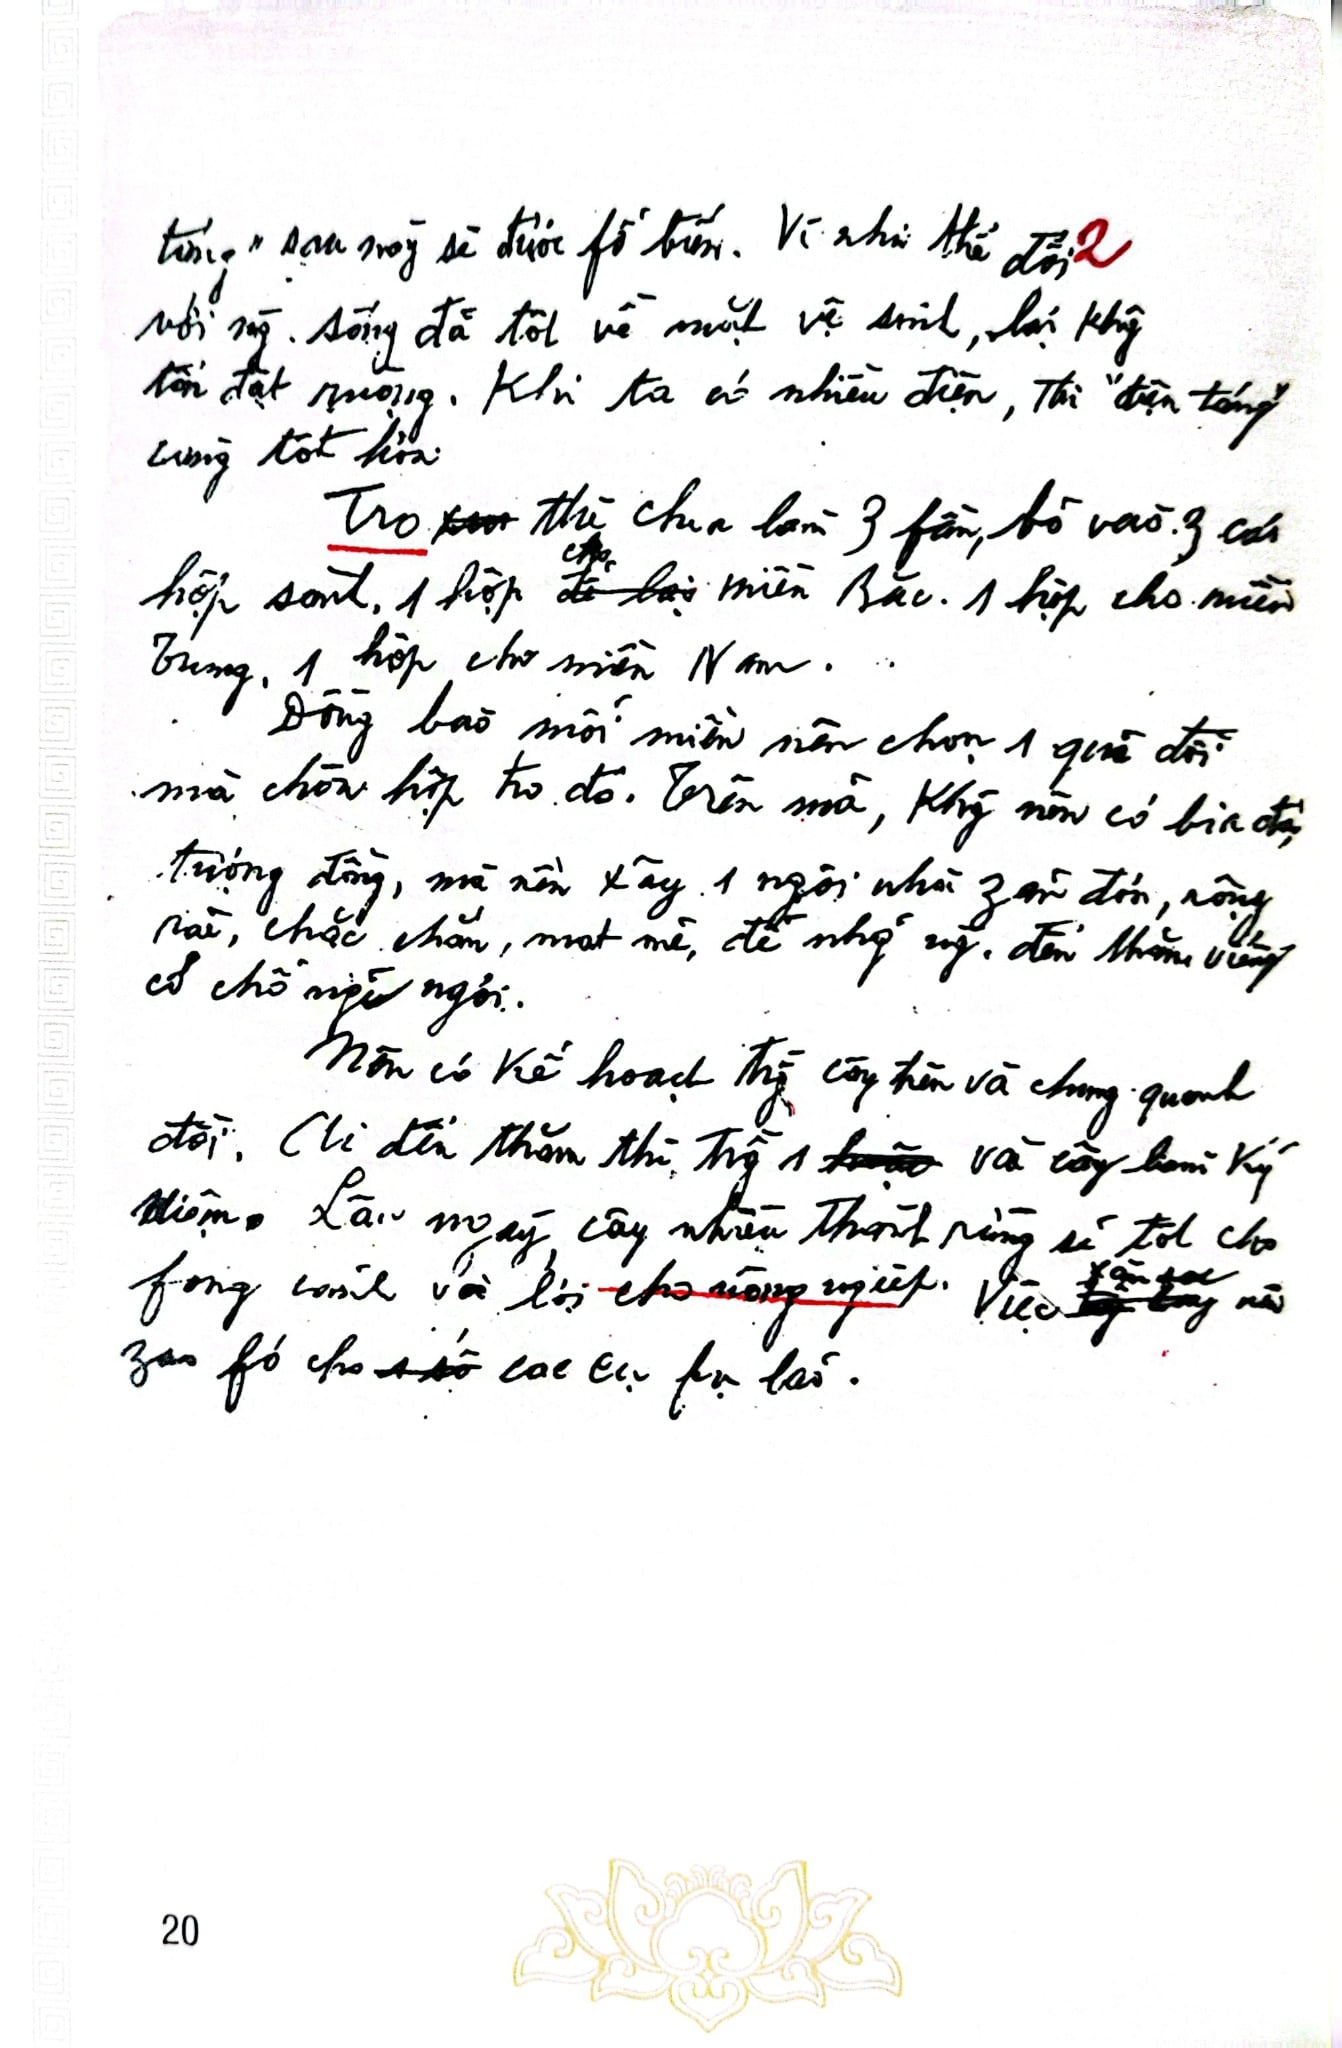 táng" sau này sẽ được fổ biến. Vì như thế đối 2
với ng. sống đã tốt về mặt vệ sinh, lại khg
tốn đất ruộng. Khi ta có nhiều điện, thì "điện táng"
càng tốt hơn.
Tro xxx thì chia làm 3 fần, bỏ vào 3 cái
hộp sành. 1 hộp để lại cho miền Bắc. 1 hộp cho miền
Trung. 1 hộp cho miền Nam.
Đồng bào mỗi miền nên chọn 1 quả đồi
mà chôn hộp tro đó. Trên mả, khg nên có bia đá,
tượng đồng, mà nên xây 1 ngôi nhà zản đơn, rộng
rãi, chắc chắn, mát mẻ, để nhg ng. đến thăm viếng
có chỗ nghỉ ngơi.
Nên có kế hoạch trg cây trên và chung quanh
đồi. Ai đến thăm thì trg 1 vài cây làm kỷ
niệm. Lâu ngày, cây nhiều thành rừng sẽ tốt cho
fong cảnh và lợi cho nông ngiệp. Việc săn sóc nên
zao fó cho 1 số các cụ fụ lão.
20